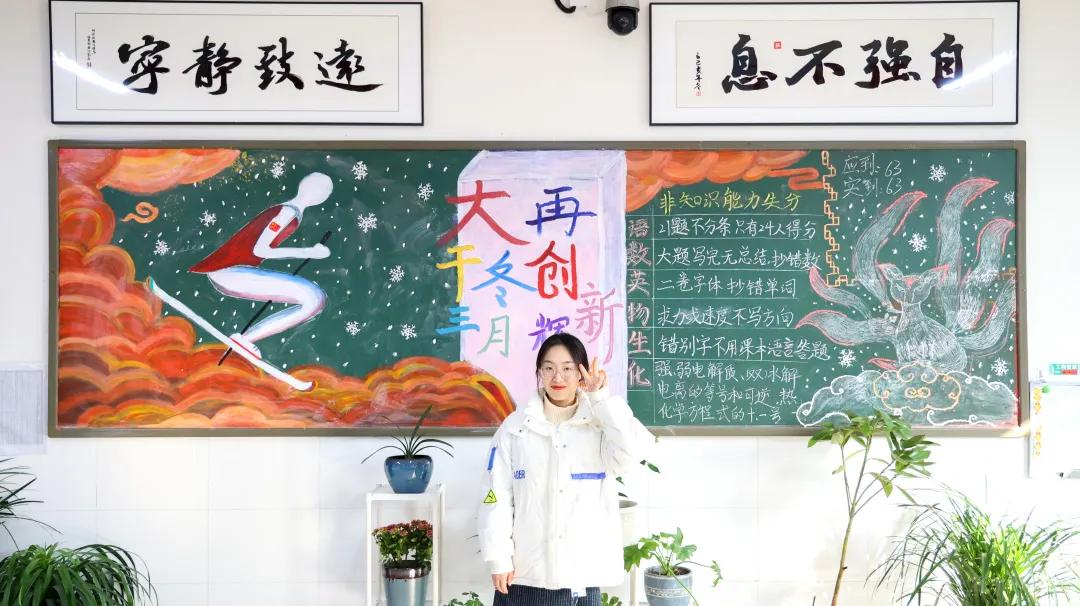 寧靜致遠
自强不息
大干三
冬月
再创辉
新
应到:63
实到:63
非知识能力失分
语 21题不分条只有24人得分
数 大题写完无总结.抄错数
英 二卷字体 抄错单词
物 求力或速度不写方向
生 错别字不用课本语言答题
化 强,弱电解质、双水解
电离的等号和可逆.热
化学方程式的